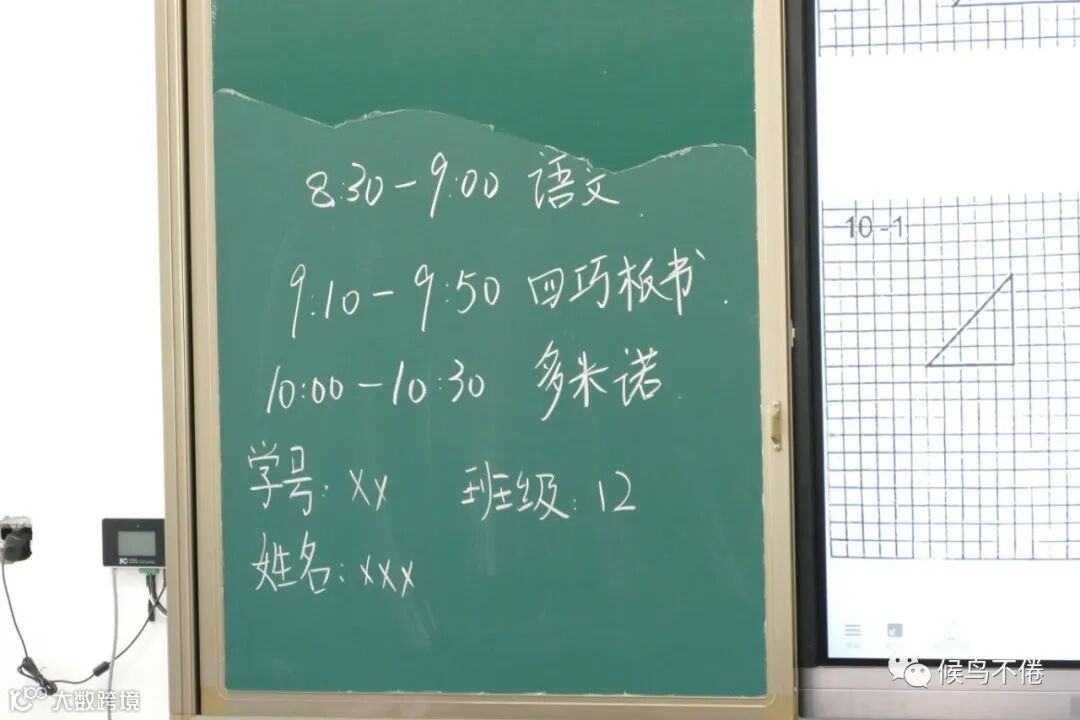 8:30-9:00 语文
9:10-9:50 四巧板书.
10:00-10:30 多米诺.
学号: xx 班级: 12
姓名: xxx
10-1
候鸟不倦
大数跨境